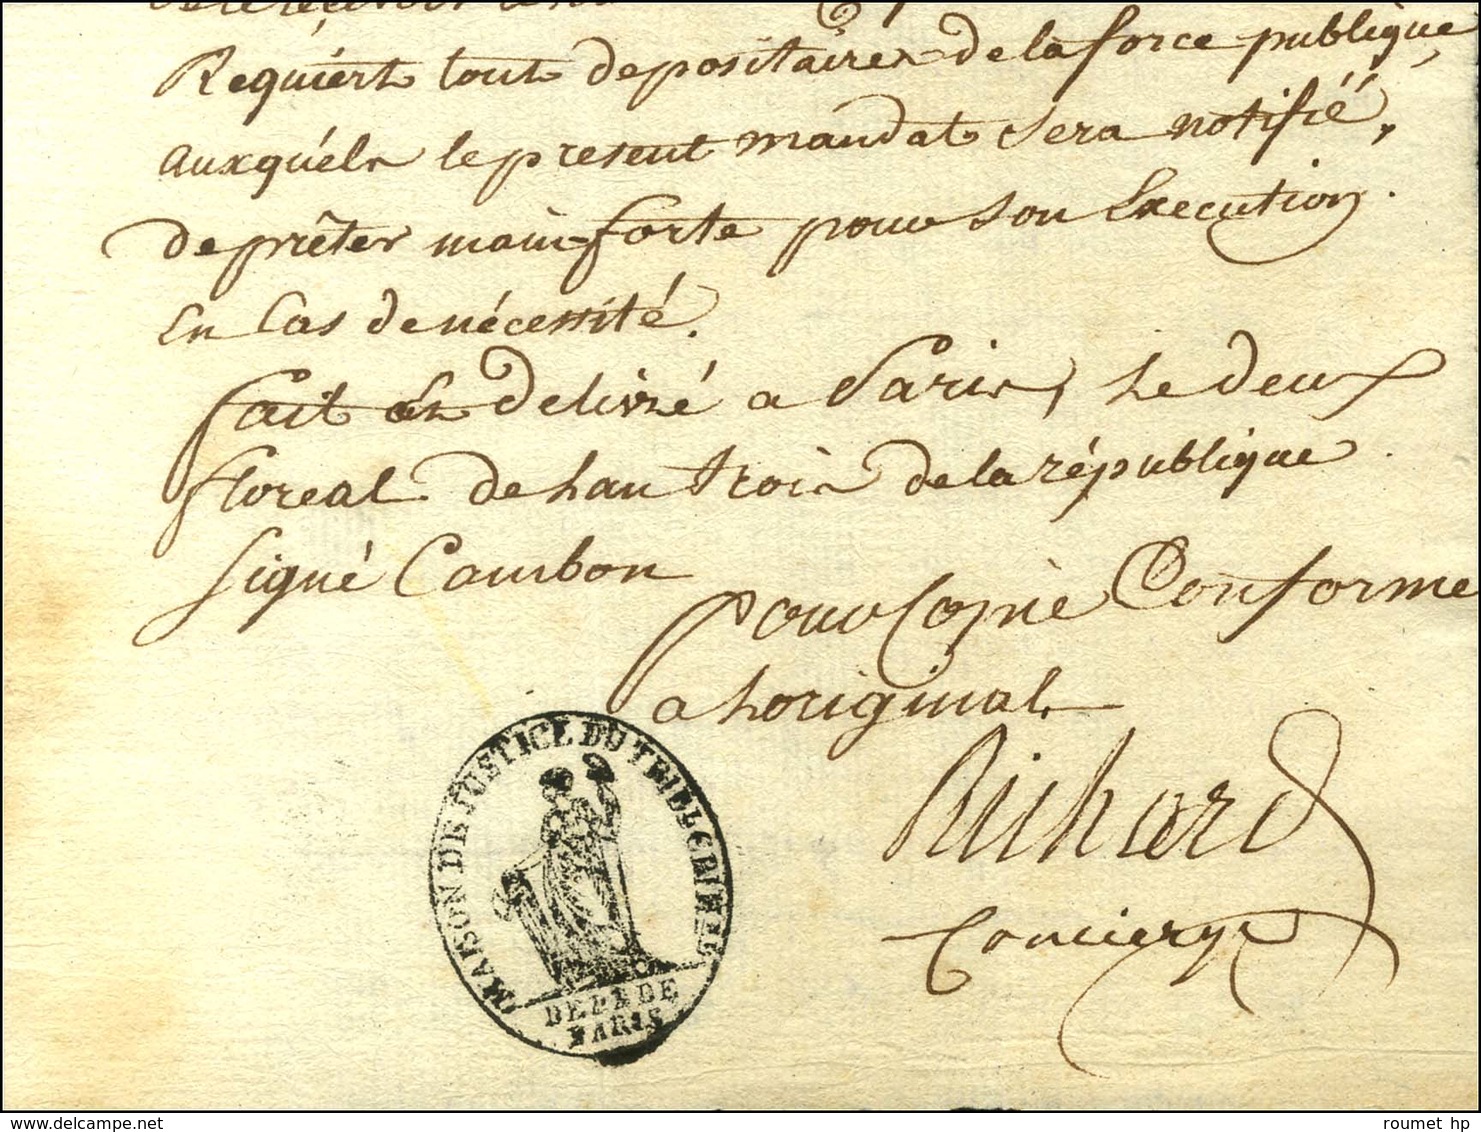 Requiert tout depositaires de la force publique
auxquéls le present mandat sera notifié,
de prêter main forte pour son Execution.
En Cas de nécessité.
fait et delivré a Paris, le deux
floreal de lan trois de la république
signé Cambon
Pour Copie Conforme
a loriginal
Richard
Concierge
MAISON DE JUSTICE DU TRIB CRIMEL
DEP DE
PARIS
roumet hp